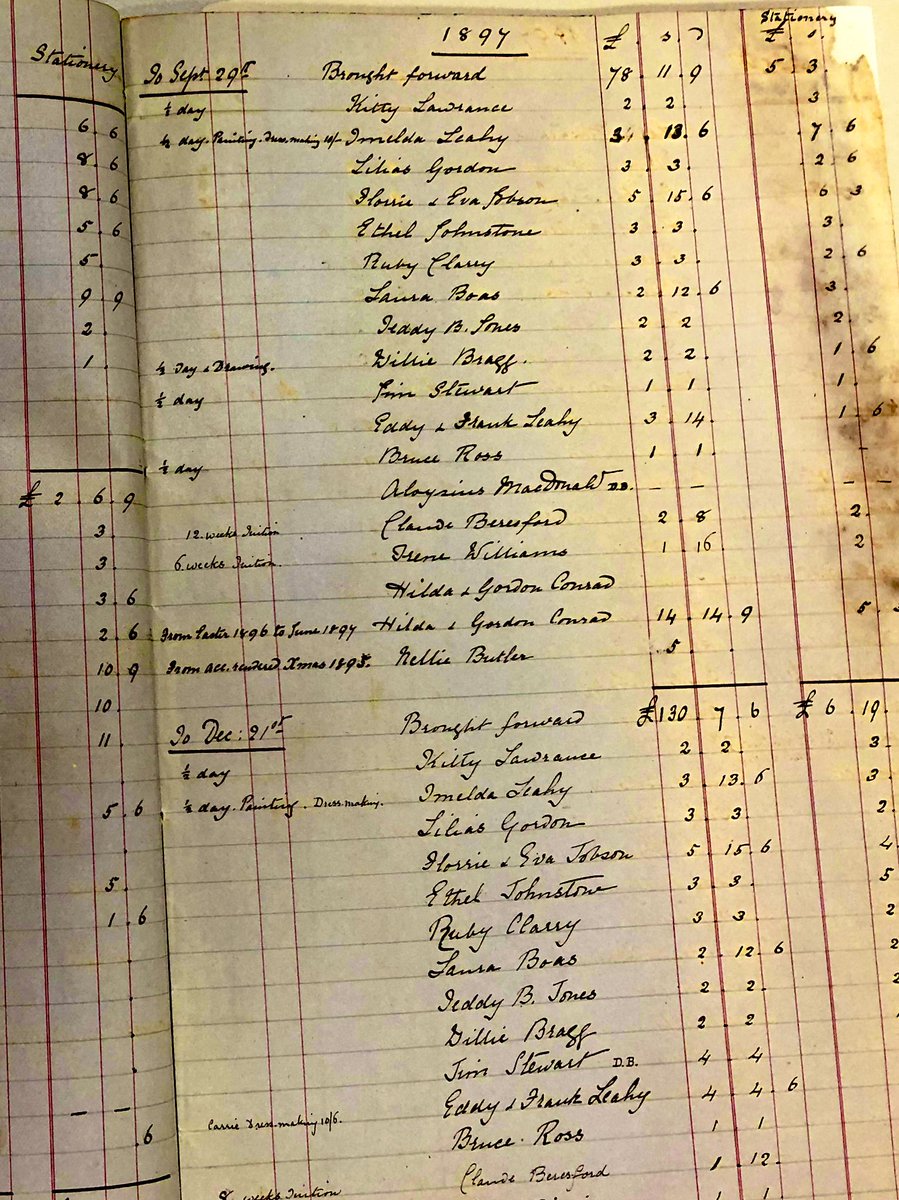 Stationery
6. 6
8. 6
8. 6
5. 6
5.
9. 9
2.
1.
£ 2. 6. 9
3.
3.
3. 6
2. 6
10. 9
10.
11.
5. 6
5.
1. 6
— —
.6
1897 £ s D Stationery £ s.
To Sept 29th Brought forward 78. 11. 9 5. 3.
½ day Kitty Lawrance 2. 2. 3.
½ day. Painting. Dress.making 10/- Imelda Leahy 3. 13. 6 7. 6
Lilias Gordon 3. 3. 2. 6
Florrie & Eva Jobson 5. 15. 6 6. 3
Ethel Johnstone 3. 3. 3.
Ruby Clarry 3. 3. 2. 6
Laura Boas 2. 12. 6 3.
Teddy B. Jones 2. 2 2.
½ Day & Drawing. Willie Bragg. 2. 2. 1. 6
½ day Jim Stewart 1. 1. 1.
Eddy & Frank Leahy 3. 14. 1. 6
½ day Bruce Ross 1. 1. –
Aloysius MacDonald D.B. – – – –
12. weeks Tuition Claude Beresford 2. 8 2.
6. weeks Tuition. Irene Williams 1. 16 2
Hilda & Gordon Conrad
From Easter 1896 to June 1897 Hilda & Gordon Conrad 14. 14. 9 5.
From acc. rendered Xmas 1895. Nellie Butler 5.
£130. 7. 6 £ 6. 19.
To Dec: 21st Brought forward
½ day Kitty Lawrance 2. 2. 3.
½ day. Painting. Dress.making. Imelda Leahy 3. 13. 6 3.
Lilias Gordon 3. 3. 2.
Florrie & Eva Jobson 5. 15. 6 4.
Ethel Johnstone 3. 3. 5
Ruby Clarry 3. 3. 2
Laura Boas 2. 12. 6 2.
Teddy B. Jones 2. 2. 2
Willie Bragg 2. 2
Jim Stewart D.B. 4. 4
Eddy & Frank Leahy 4. 4. 6
Carrie Dress.making 10/6. Bruce. Ross 1. 1
Claude Beresford 1. 12.
8 weeks Tuition